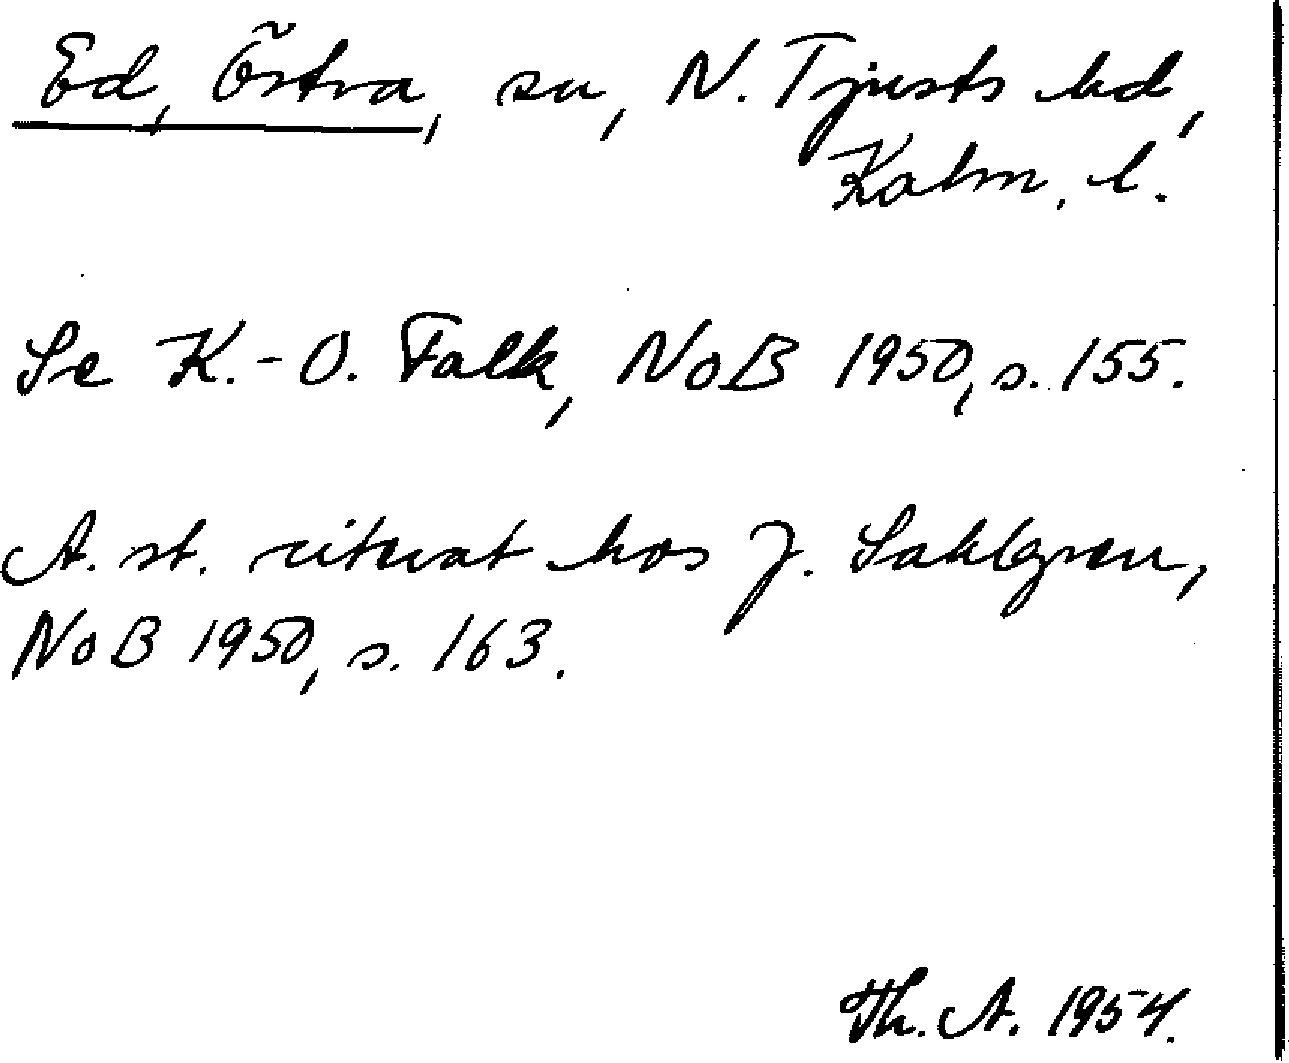 Ed, Östra, sn, N. Tjusts hd,
Kalm. l.
Se K.-O. Falk, NoB 1950, s. 155.
A. st. citerat hos J. Sahlgren,
NoB 1950, s. 163.
Th. A. 1954.